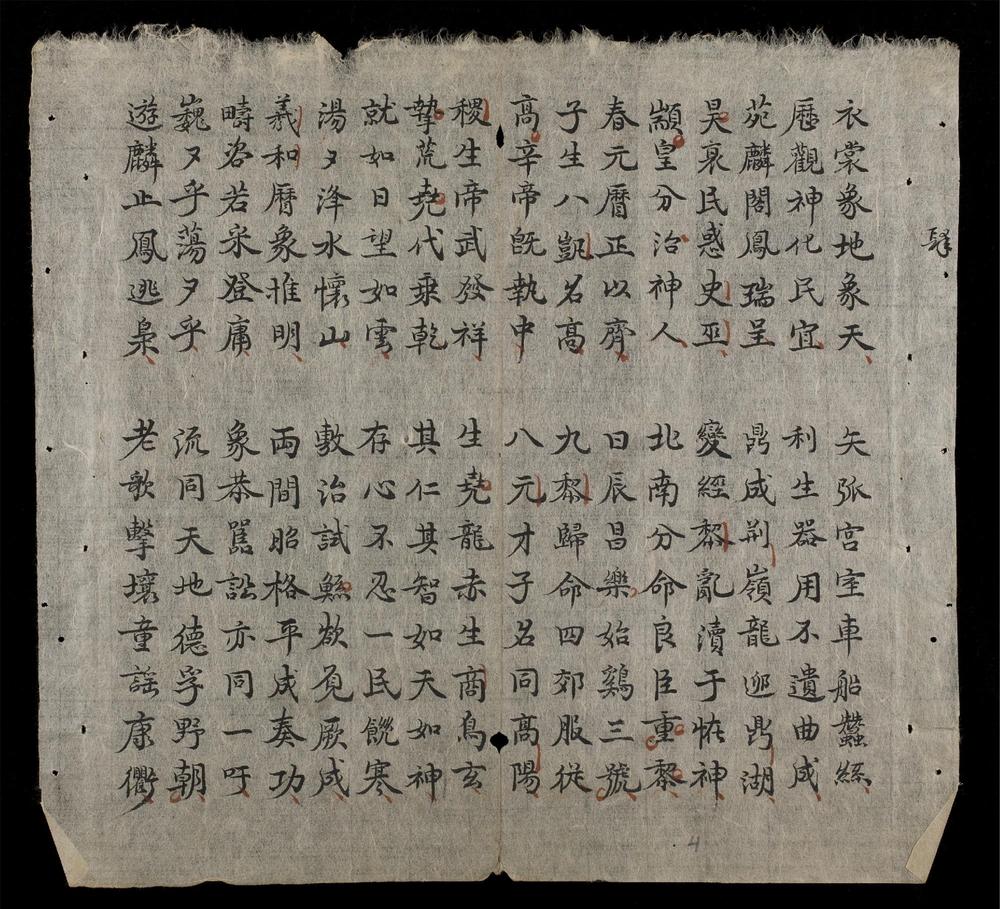 衣裳象地象天 矢弧宮室車船蠶絲
歷觀神化民宜 利生器用不遺曲成
苑麟閣鳳瑞呈 鼎成荆嶺龍迎鼎湖
昊衰民惑史巫 變經黎亂瀆于怪神
顓皇分治神人 北南分命良臣重黎
春元曆正以齊 日辰昌樂始鷄三號
子生八凱名高 九黎歸命四郊服從
高辛帝既執中 八元才子名同高陽
稷生帝武發祥 生堯龍赤生商鳥玄
摯荒堯代乘乾 其仁其智如天如神
就如日望如雲 存心不忍一民饑寒
湯〻洚水懷山 敷治試鯀厥成
羲和曆象推明 兩間昭格平成奏功
疇咨若宷登庸 象恭嚚訟亦同一吁
巍〻乎蕩〻乎 流同天地德孚野朝
遊麟止鳳逃梟 老歌擊壤童謠康衢
4